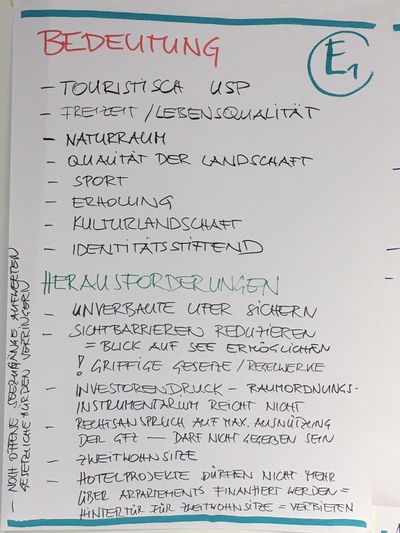 BEDEUTUNG
E1
- TOURISTISCH USP
- FREIZEIT / LEBENSQUALITÄT
- NATURRAUM
- QUALITÄT DER LANDSCHAFT
- SPORT
- ERHOLUNG
- KULTURLANDSCHAFT
- IDENTITÄTSSTIFTEND
HERAUSFORDERUNGEN
- UNVERBAUTE UFER SICHERN
- SICHTBARRIEREN REDUZIEREN
= BLICK AUF SEE ERMÖGLICHEN
! GRIFFIGE GESETZE / REGELWERKE
- INVESTORENDRUCK - RAUMORDNUNGS-
INSTRUMENTARIUM REICHT NICHT
- RECHTSANSPRUCH AUF MAX. AUSNÜTZUNG
DER GFZ — DARF NICHT GEGEBEN SEIN
- ZWEITWOHNSITZE
- HOTELPROJEKTE DÜRFEN NICHT MEHR
ÜBER APPARTEMENTS FINANZIERT WERDEN =
HINTERTÜR FÜR ZWEITWOHNSITZE = VERBIETEN
- NOCH OFFENE SEEZUGÄNGE AUFWERTEN
GESETZLICHE HÜRDEN VERRINGERN